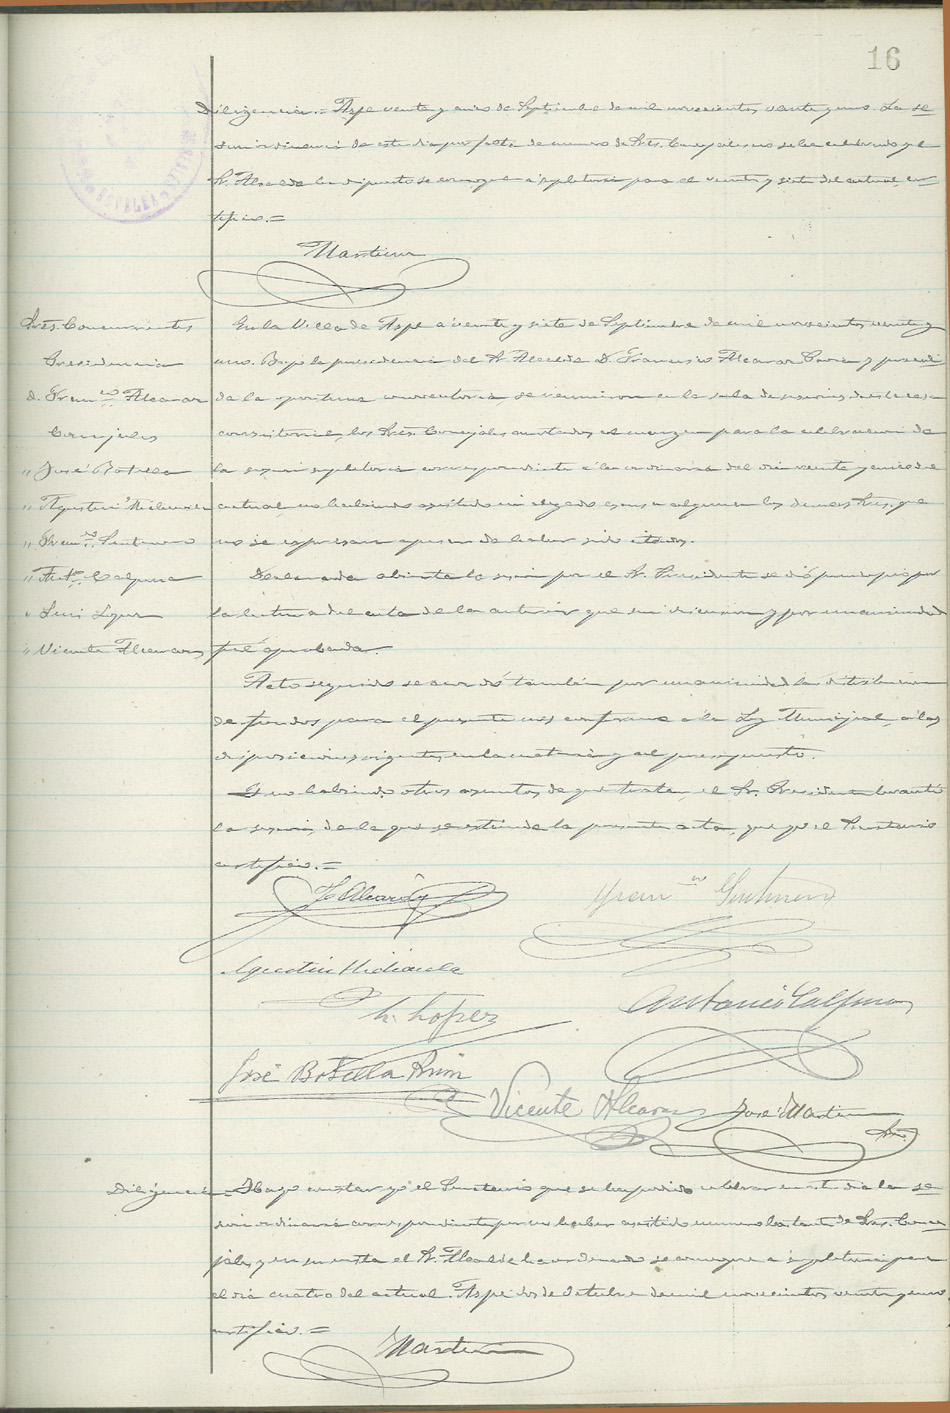 16
Diligencia.= Aspe veinte y cinco de Septiembre de mil novecientos veinte y uno. La se-
sion ordinaria de este dia por falta de numero de Sres. Concejales no se ha celebrado y el
Sr. Alcalde ha dispuesto se convoque a supletoria para el veinte y siete del actual, cer-
tifico.=
Martinez
Sres. Concurrentes
Presidencia
D. Franco Alcaraz
Concejales
" José Botella
" Agustin Mirambell
" Franco
" Anto. Calpena
" Luis Lopez
" Vicente Alcaraz
En la Villa de Aspe a veinte y siete de Septiembre de mil novecientos veinte y
uno. Bajo la presidencia del Sr. Alcalde D. Francisco Alcaraz y previa
de la oportuna convocatoria, se reunieron en la sala de sesiones de esta casa
consistorial, los Sres. Concejales anotados al margen para la celebracion de
la sesion supletoria correspondiente a la ordinaria del dia veinte y cinco del
actual no habiendo asistido ni alegado causa alguna los demas Sres. que
no se expresan apesar de haber sido citados.
Declarada abierta la sesion por el Sr. Presidente se dió principio por
la lectura del acta de la anterior que sin discusion y por unanimidad
fué aprobada.
Acto seguido se acordó también por unanimidad la distribucion
de fondos para el presente mes conforme a la Ley Municipal, a las
disposiciones vigentes en la materia y al presupuesto.
Y no habiendo otros asuntos de que tratar, el Sr. Presidente levantó
la sesion de la que se extiende la presente acta, que yo el Secretario
certifico.=
F. Alcaraz
Franco
Agustin
L. Lopez
Antonio Calpena
José Botella
Vicente Alcaraz
José Martinez
Diligencia = Hago constar yo el Secretario que no se ha podido celebrar en este dia la se-
sion ordinaria correspondiente por no haber asistido numero bastante de Sres. Conce-
jales y en su vista el Sr. Alcalde ha ordenado se convoque a supletoria para
el dia cuatro del actual. Aspe dos de Octubre de mil novecientos veinte y uno
certifico.=
Martinez